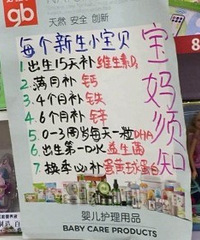 gb
天然 安全 创新
每个新生小宝贝
1.出生15天补维生素D
2.满月补钙
3.4个月补铁
4.6个月补锌
5.0-3周岁每天一粒DHA
6.出生第一口水益生菌
7.换季必补蛋黄球蛋白
宝妈须知
婴儿护理用品
BABY CARE PRODUCTS